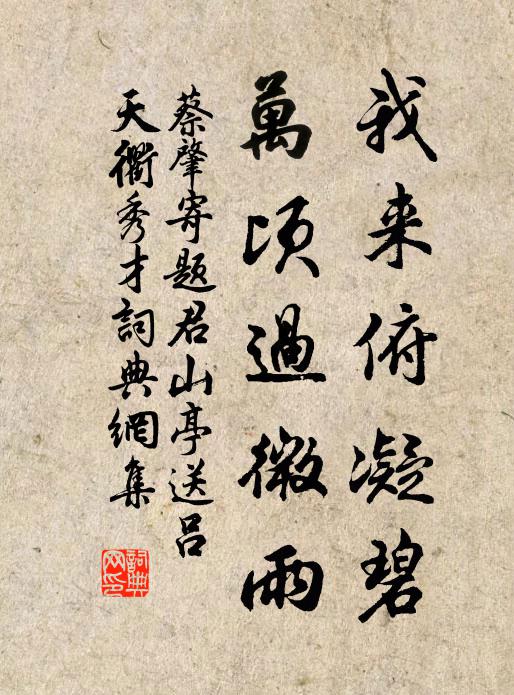 我来俯凝碧
萬頃過微雨
蔡肇寄题君山亭送呂
天衢秀才詞典網集
詞典网印